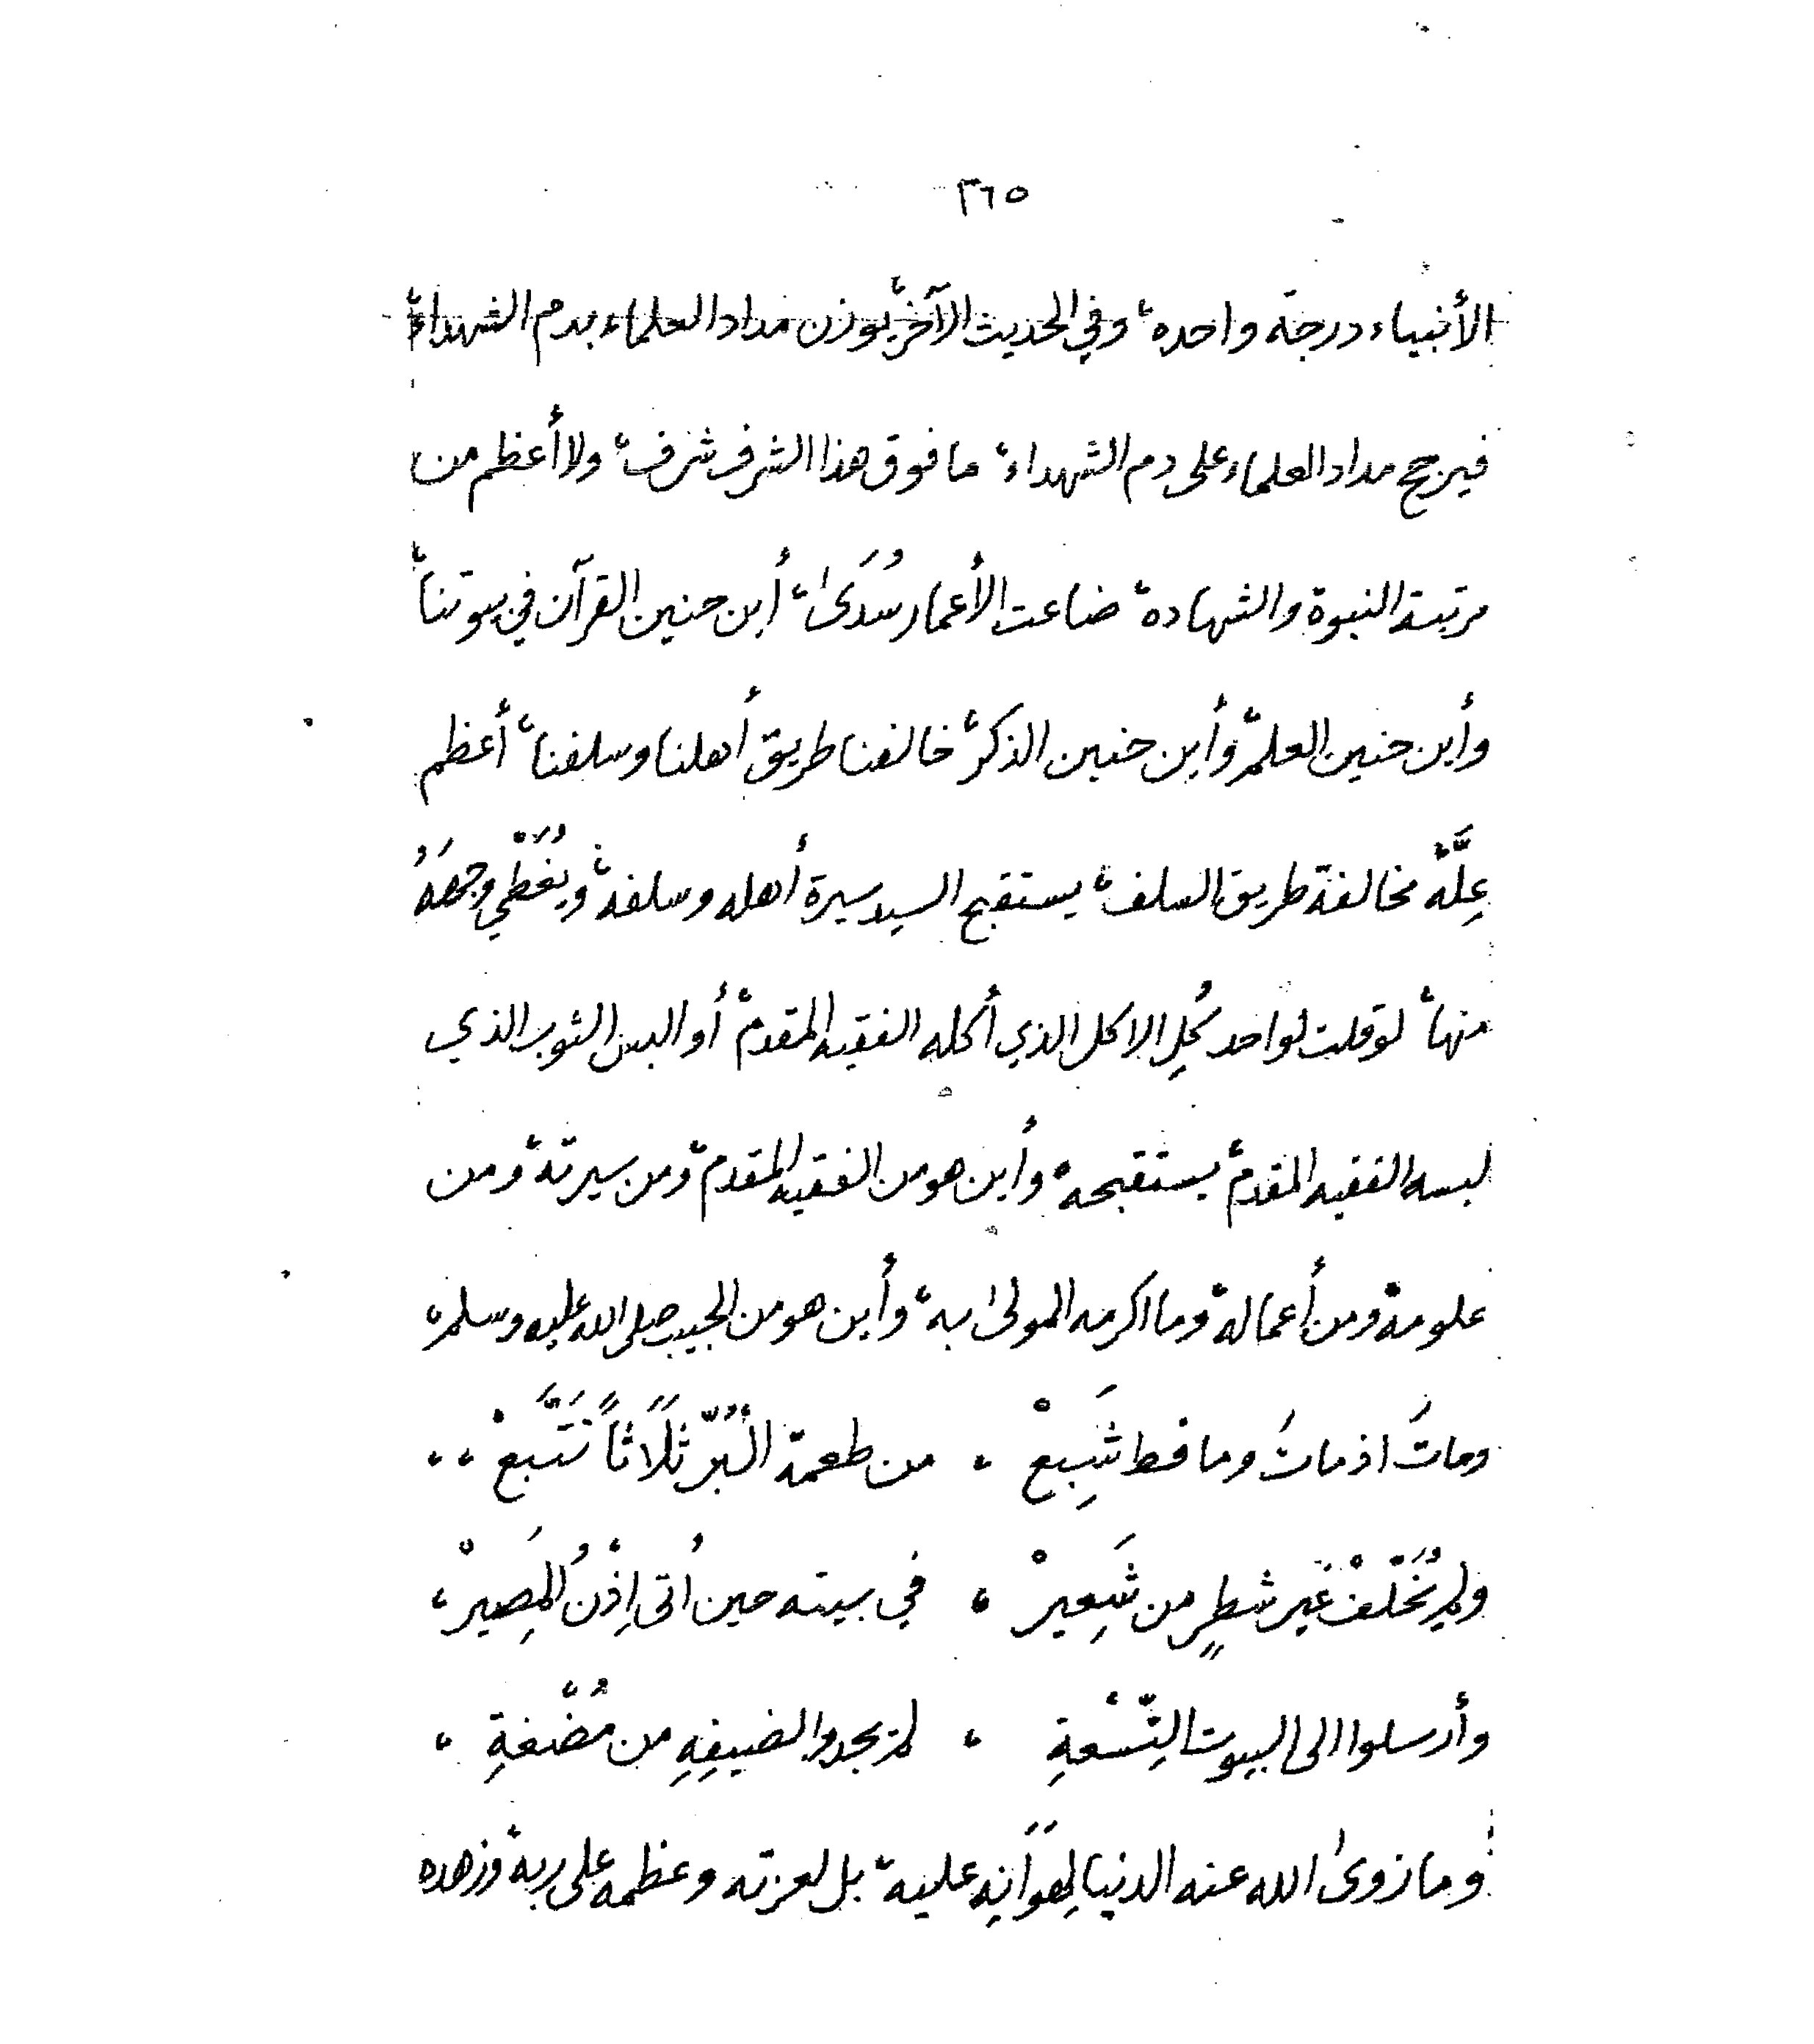 ٣٦٥
الأنبياء درجة واحده، وفي الحديث الآخر، يوزن مداد العلماء بدم الشهداء،
فيرجح مداد العلماء على دم الشهداء، ما فوق هذا الشرف شرف، ولا أعظم من
مرتبة النبوة والشهاده، ضاعت الأعمار سُدَىٰ، أين حنين القرآن في بيوتنا،
وأين حنين العلم، وأين حنين الذكر، خالفنا طريق أهلنا وسلفنا، أعظم
عِلَّه، مخالفة طريق السلف، يستقبح السيد سيرة أهله وسلفه، ويُغَطّي وجهَهُ
منها، لو قلت لواحد كُلِ الاكل الذي أكله الفقيه المقدم، أو البس الثوب الذي
لبسه الفقيه المقدم، يستقبحه، وأين هو من الفقيه المقدم، ومن سيرته، ومن
علومه، ومن أعماله، وما اكرمه المولىٰ به، وأين هو من الحبيب صلى الله عليه وسلم،
وماتَ اذ ماتَ وما قط شَبِعْ ، من طعمة الْبُرّ ثَلَاثاً تَتَّبِعْ ،،
ولم يُخَلّفْ غير شطرٍ من شَعِيرْ ، في بيته حين أُتى إِذْنُ المَصِيرْ ،
وأرسلوا الى البيوت التِّسْعةِ ، لم يجدوا لضيفِهِ من مُضْغةِ ،
وما زوىٰ الله عنه الدنيا لِهَوَانِهِ عليه، بل لعزته وعظمه على ربه، وزهده